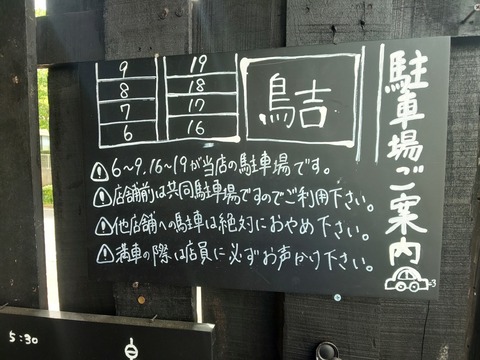 駐車場ご案内
9 19
8 18
7 17
6 16
鳥吉
6~9,16~19が当店の駐車場です。
店舗前は共同駐車場ですのでご利用下さい。
他店舗への駐車は絶対におやめ下さい。
満車の際は店員に必ずお声かけ下さい。
5:30